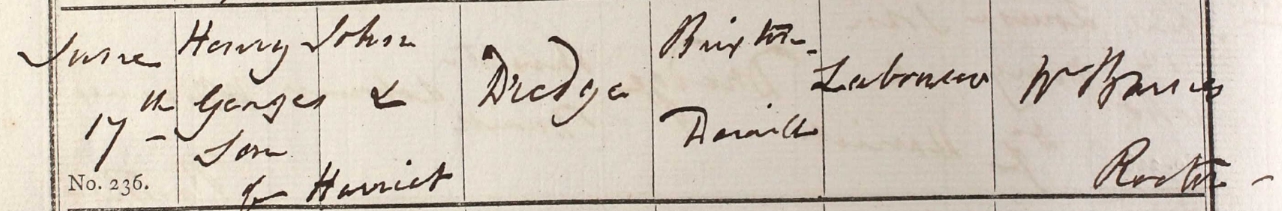 June
17th
No. 236.
Henry
George
Son
of
John
&
Harriet
Dredge
Brixton
Deverill
Labourer
Wm Barnes
Rector